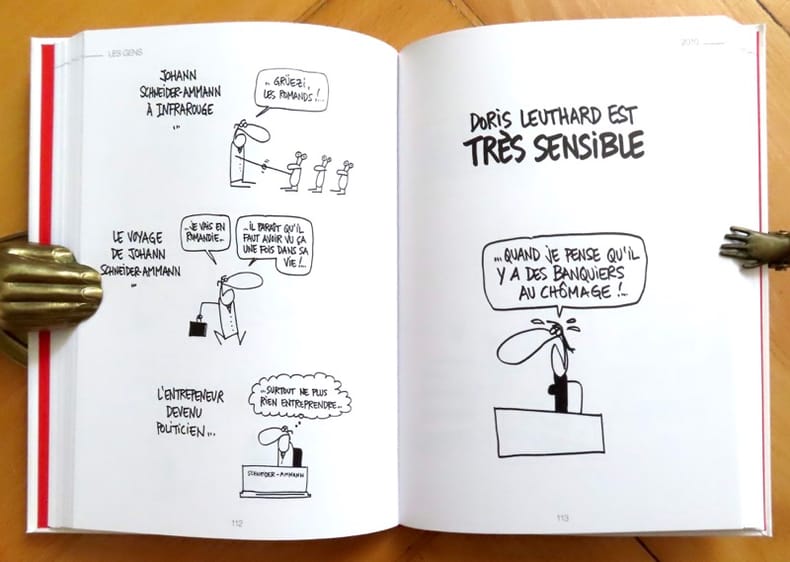 LES GENS
JOHANN
SCHNEIDER-AMMANN
À INFRAROUGE
...
... GRÜEZI,
LES ROMANDS !...
LE VOYAGE
DE JOHANN
SCHNEIDER-AMMANN
...
...JE VAIS EN
ROMANDIE...
...IL PARAÎT QU'IL
FAUT AVOIR VU ÇA
UNE FOIS DANS SA
VIE !...
L'ENTREPENEUR
DEVENU
POLITICIEN...
...SURTOUT NE PLUS
RIEN ENTREPRENDRE...
SCHNEIDER-AMMANN
112
2010
DORIS LEUTHARD EST
TRÈS SENSIBLE
...QUAND JE PENSE QU'IL
Y A DES BANQUIERS
AU CHÔMAGE !...
113